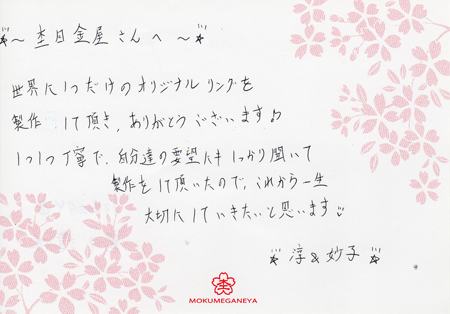 ~ 杢目金屋さんへ ~
世界に1つだけのオリジナルリングを
製作して頂き、ありがとうございます♪
1つ1つ丁寧で、自分達の要望にもしっかり聞いて
製作をして頂いたので、これから一生
大切にしていきたいと思います
淳&妙子
杢
MOKUMEGANEYA